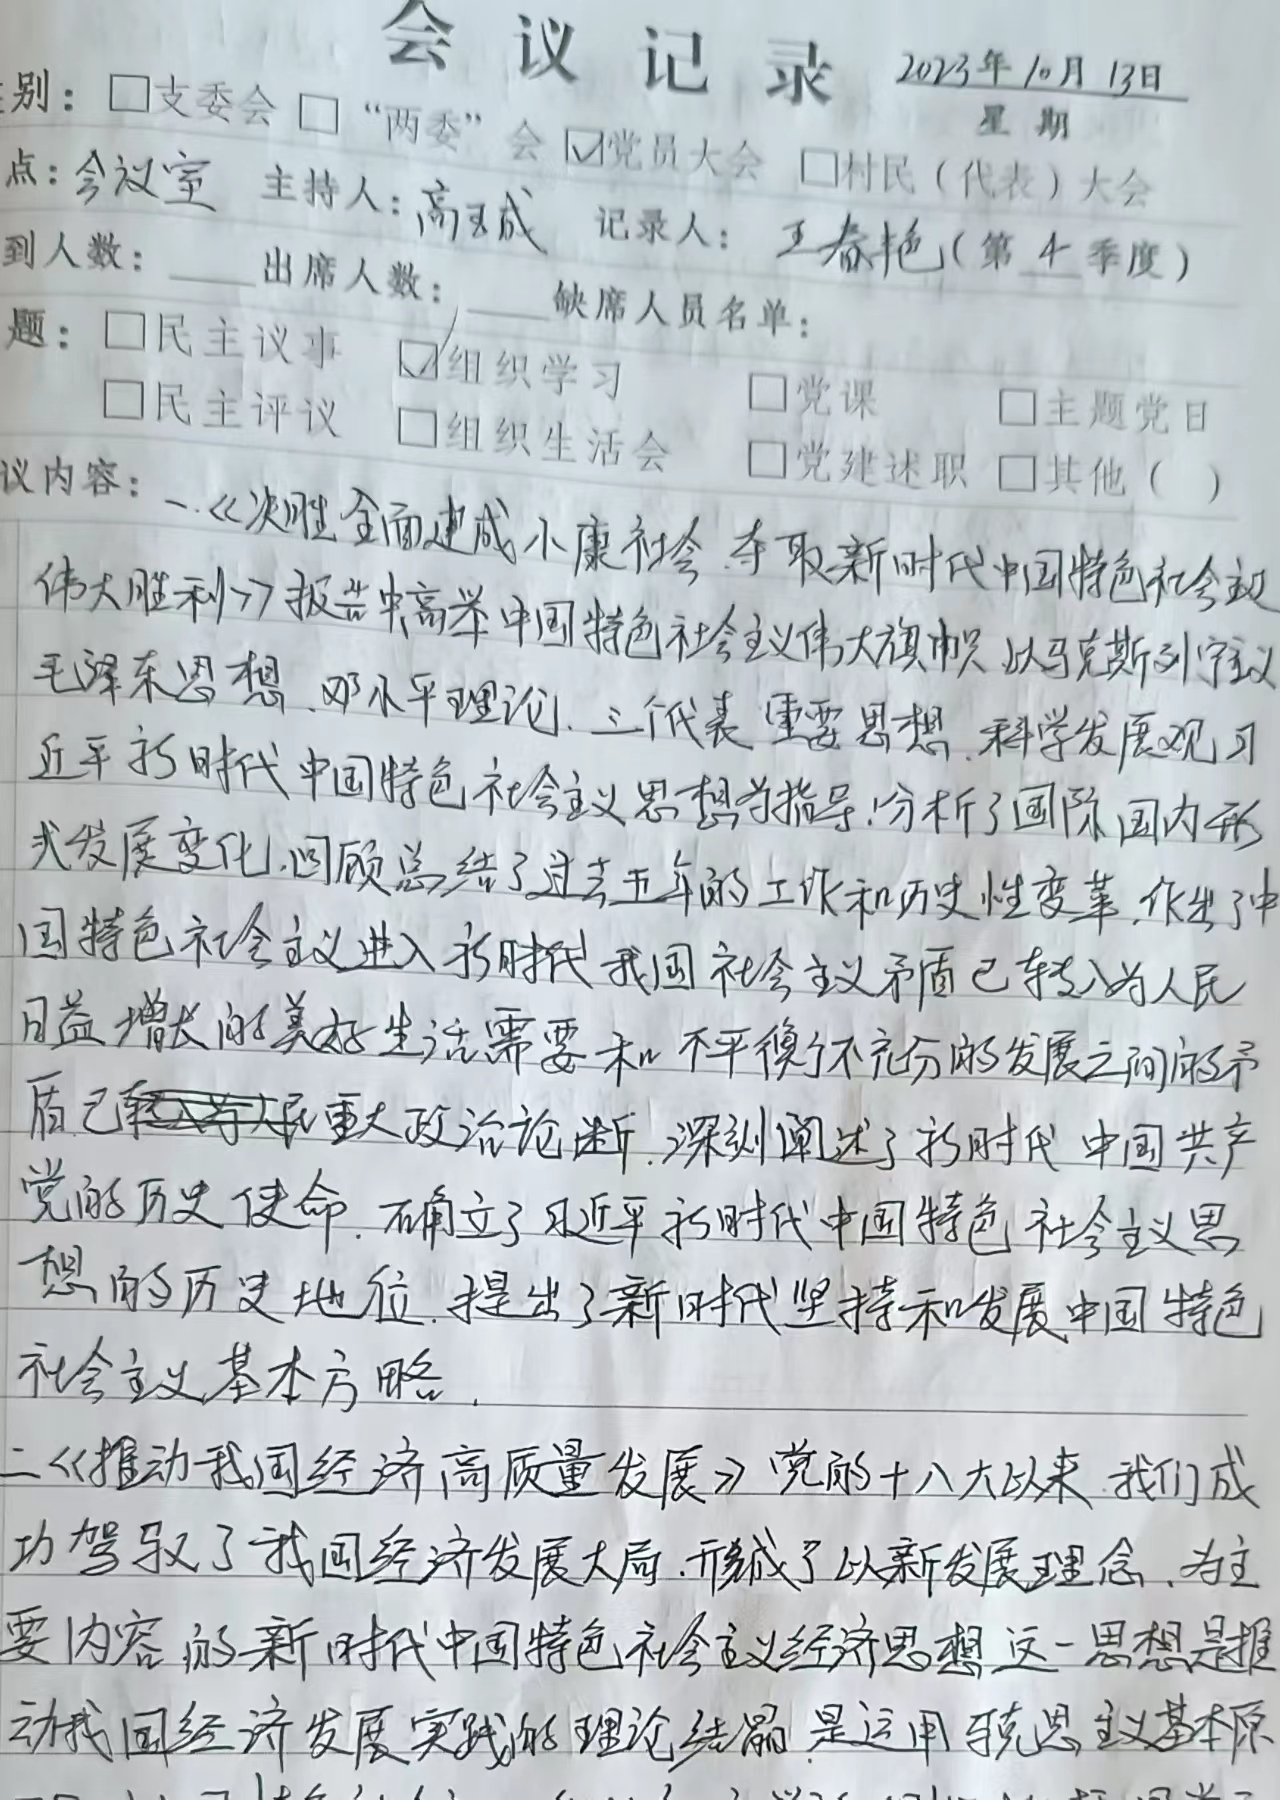 会议记录
2023年10月13日
星期
别：□支委会 □“两委”会 ☑党员大会 □村民（代表）大会
点：会议室 主持人：高玉成 记录人：王春艳（第4季度）
到人数：____出席人数：____缺席人员名单：
题：□民主议事 ☑组织学习 □党课 □主题党日
□民主评议 □组织生活会 □党建述职 □其他（ ）
议内容：一.《决胜全面建成小康社会.夺取新时代中国特色社会主义
伟大胜利》报告中,高举中国特色社会主义伟大旗帜 以马克斯列宁主义
毛泽东思想.邓小平理论.三个代表重要思想.科学发展观 习
近平新时代中国特色社会主义思想为指导.分析了国际国内形
式发展变化.回顾总结了过去五年的工作和历史性变革.作出了中
国特色社会主义进入新时代 我国社会主义矛盾已转入为人民
日益增长的美好生活需要和不平衡个不充分的发展之间的矛
盾已 民重大政治论断.深刻阐述了新时代中国共产
党的历史使命.确立了习近平新时代中国特色社会主义思
想的历史地位.提出了新时代坚持和发展中国特色
社会主义基本方略.
二《推动我国经济高质量发展》党的十八大以来.我们成
功驾驭了我国经济发展大局.形成了以新发展理念.为主
要内容的新时代中国特色社会主义经济思想 这一思想是推
动我国经济发展实践的理论结晶.是运用马克思主义基本原